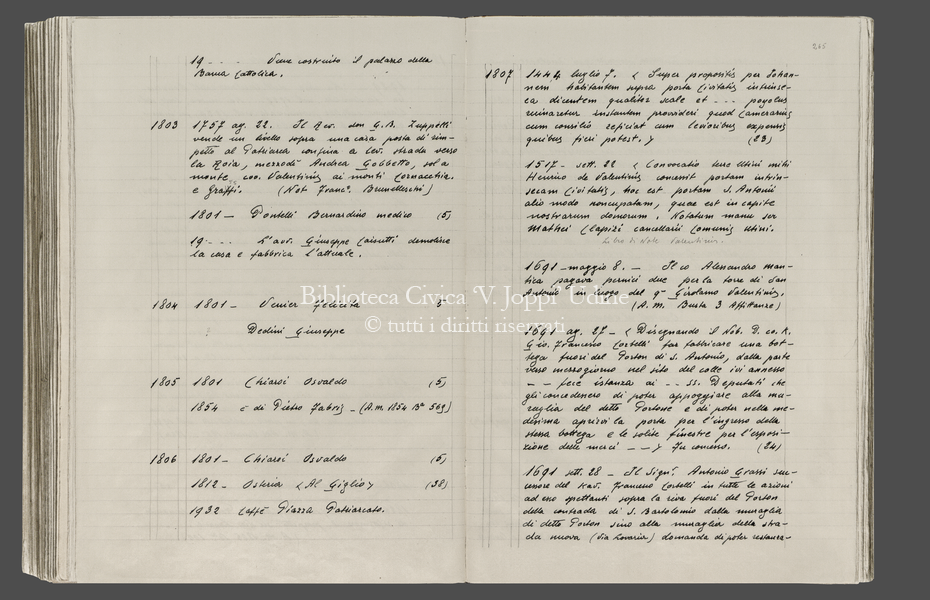 19 - - - Viene costruito il palazzo della
Banca Cattolica.
1803 1757 ag. 22. Il Rev. don G. B. Zuppelli
vende un livello sopra una casa posta di rim-
petto al Patriarca confina a lev. strada verso
la Roia, mezzodì Andrea Gobbetto, sol a
monte, co. Valentinis ai monti Cornacchia.
e Graffi. (Not Franc. Brunelleschi)
1801 - Pontelli Bernardino medico (5)
19 - - - L'avv. Giuseppe Caisutti demolisce
la casa e fabbrica l'attuale.
1804 1801 - Venier Felicita 5
Dedini Giuseppe
1805 1801 Chiaroi Osvaldo (5)
1854 è di Pietro Fabris - (A.M. 1854 Bª 569)
1806 1801 - Chiaroi Osvaldo (5)
1812 - Osteria < Al Giglio > (38)
1932 Caffè Piazza Patriarcato.
265
1807 1444 luglio 7. < Super propositis per Johan-
nem habitantem supra porta Civitatis intrinse-
ca dicentem qualiter scale et - - - poyolus
ruinazetur instantem provideri quod Camerarius
cum consilio reficiat cum levioribus expensis
quibus fieri potest. > (23)
1517 - sett. 22 < Convocatio terre Utini mihi
Henrico de Valentinis concessit portam intrin-
secam Civitatis, hoc est portam S. Antonii
alio modo noncupatam, quae est in capite
nostrarum domorum. Notatum manu ser
Mathei Clapiz cancellarii Comunis Utini.
Libro di Note Valentinis.
1691 - maggio 8. - Il co Alessandro man-
tica pagava pernici due per la torre di San
Antonio in luogo del qm Girolamo Valentinis.
(A. M. Busta 3 Affittanze)
1691 ag. 27 - < Disegnando il Nob. D. co. K.
Gio. Francesco Cortelli far fabbricare una bot-
tega fuori del Porton di S. Antonio, dalla parte
verso mezzogiorno nel sito del colle ivi annesso
- - fece istanza ai - - SS. Deputati che
gli concedessero di poter appoggiare alla mu-
raglia del detto Portone e di poter nella me-
desima aprirvi la porta per l'ingresso della
stessa bottega e le solite finestre per l'esposi-
zione delle merci - - > Fu concesso. (24)
1691 sett. 28 - Il Sigr. Antonio Grassi suc-
cessore del Kav. Francesco Cortelli in tutte le azioni
ad esso spettanti sopra la riva fuori del Porton
della contrada di S. Bartolomio dalla muraglia
di detto Porton sino alla muraglia della stra-
da nuova (Via Lovaria) domanda di poter restaura-
Biblioteca Civica 'V. Joppi' Udine
© tutti i diritti riservati